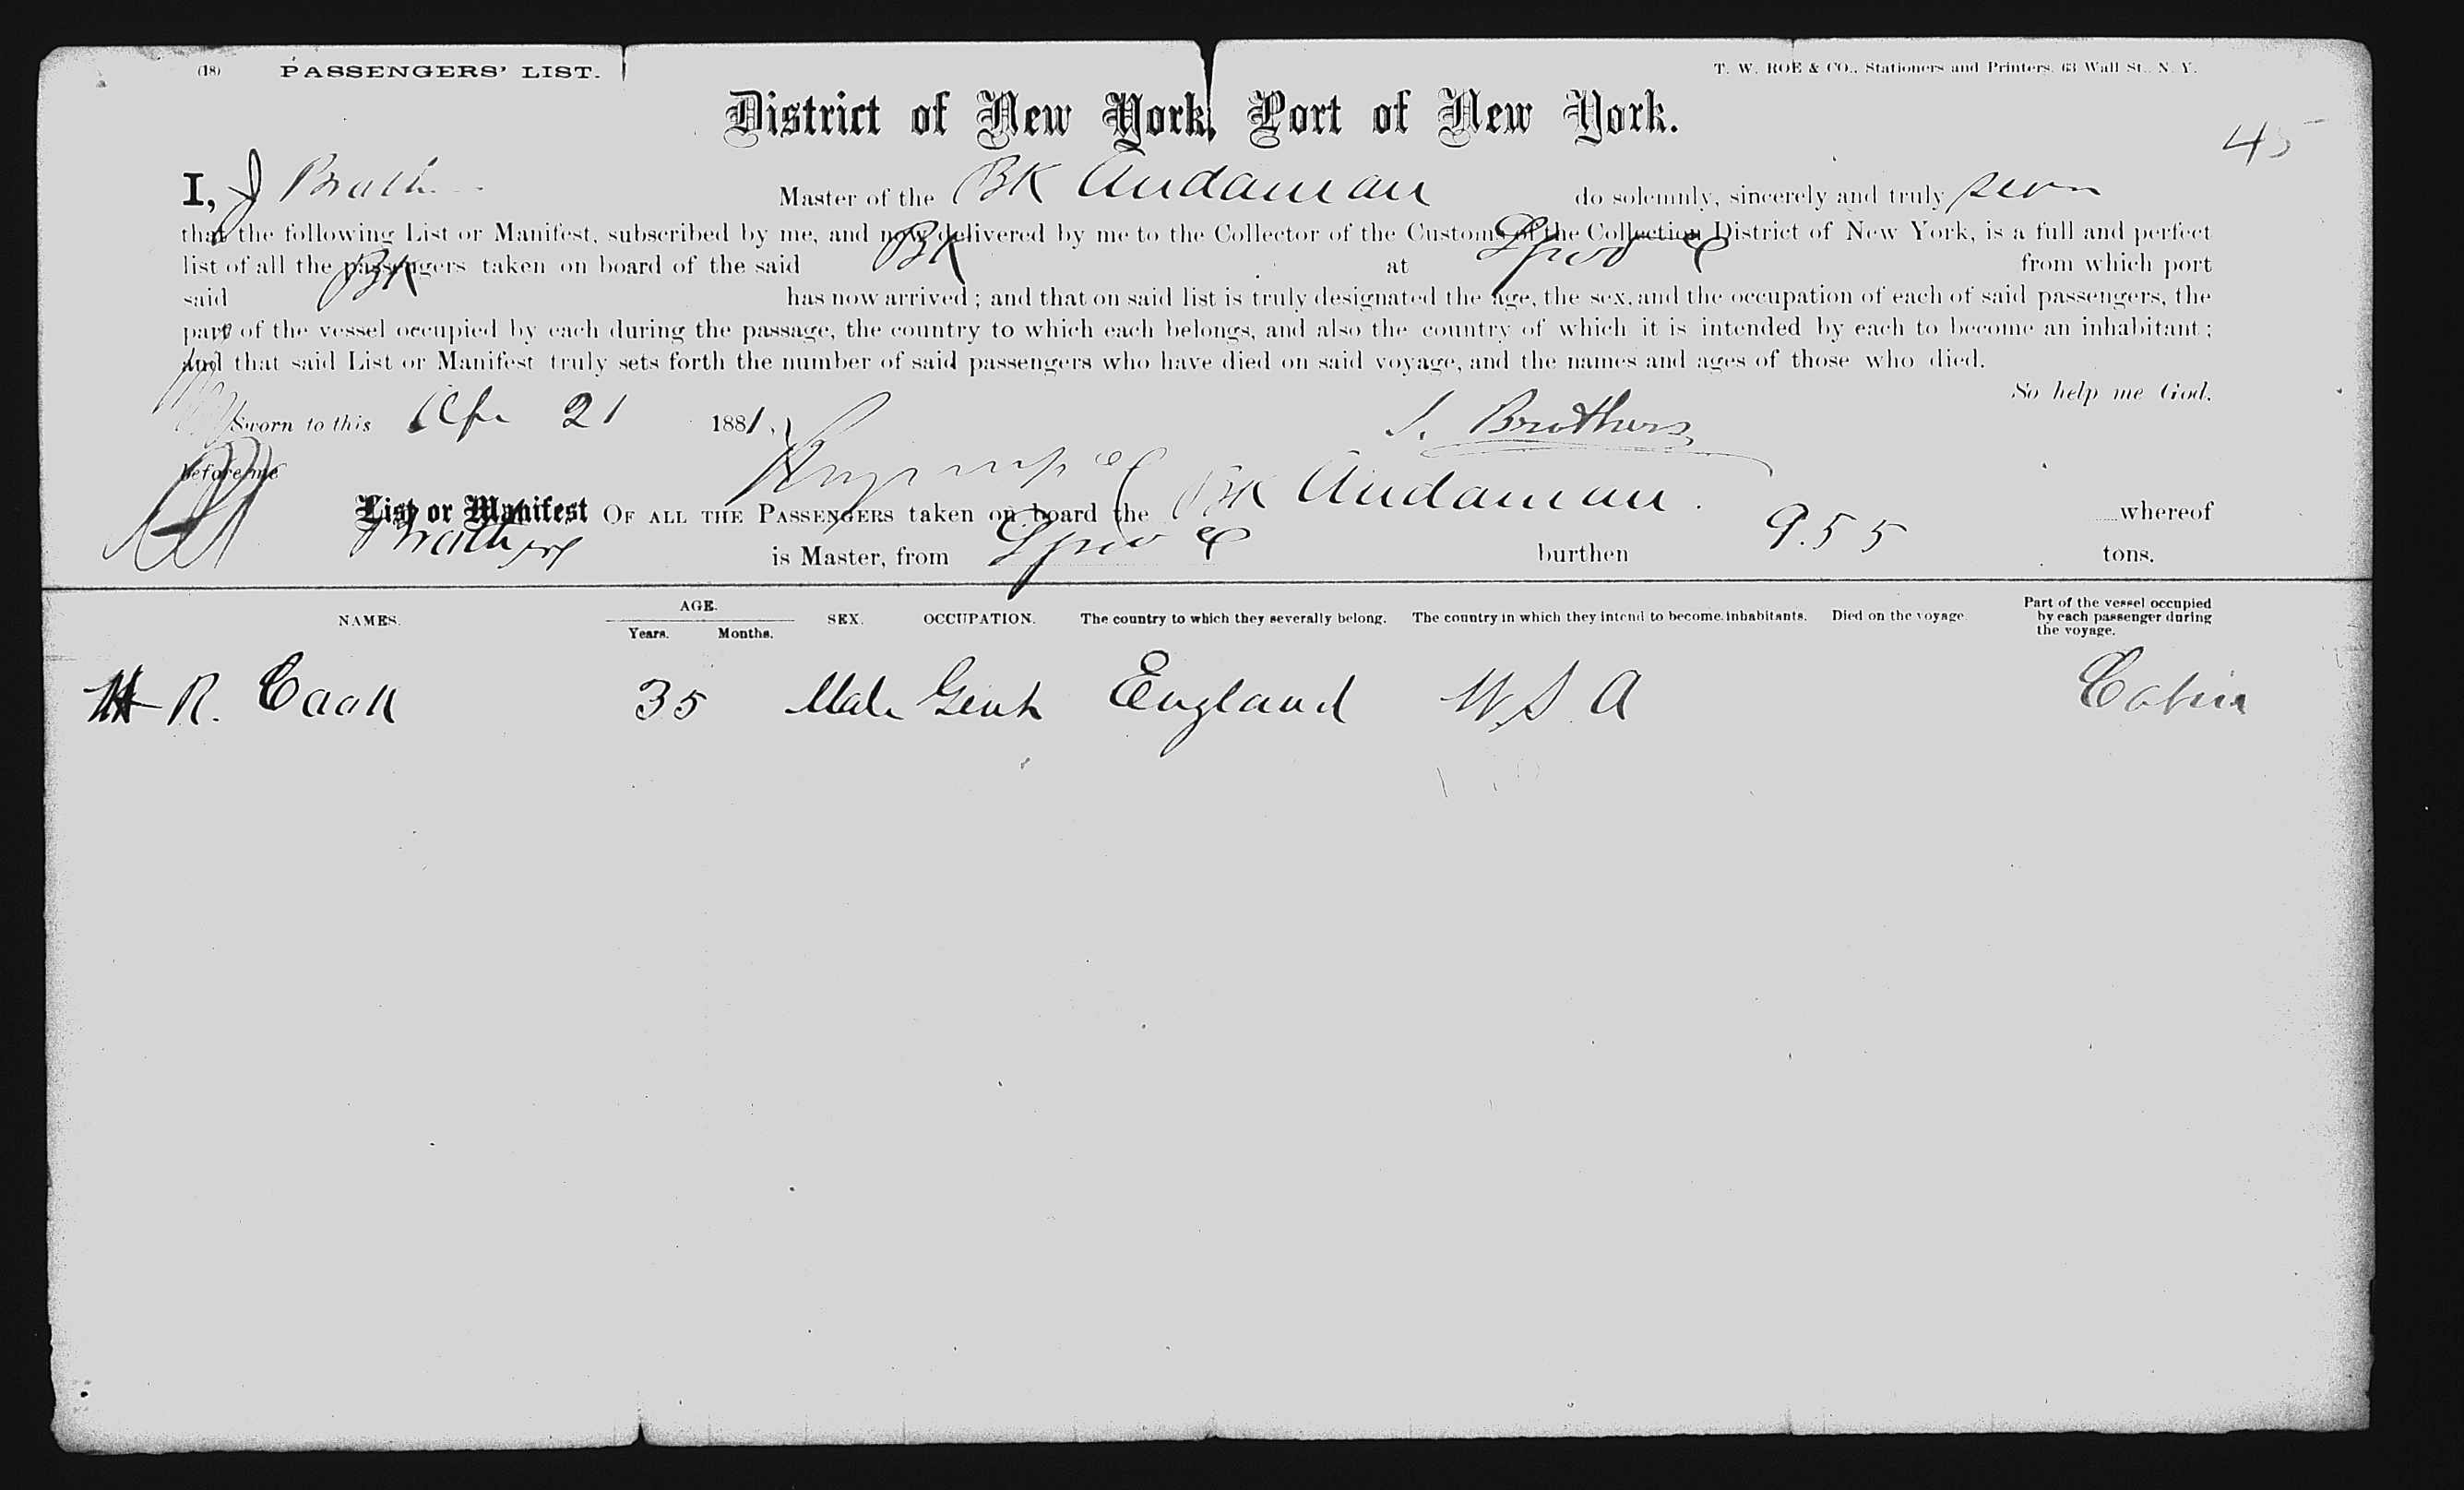 (18) PASSENGERS' LIST. T. W. ROE & CO., Stationers and Printers, 63 Wall St., N. Y.
District of New York, Port of New York.
45
I, J Master of the BK Andaman do solemnly, sincerely and truly
that the following List or Manifest, subscribed by me, and now delivered by me to the Collector of the Customs of the Collection District of New York, is a full and perfect
list of all the passengers taken on board of the said BK at Lpool from which port
said BK has now arrived; and that on said list is truly designated the age, the sex, and the occupation of each of said passengers, the
part of the vessel occupied by each during the passage, the country to which each belongs, and also the country of which it is intended by each to become an inhabitant;
and that said List or Manifest truly sets forth the number of said passengers who have died on said voyage, and the names and ages of those who died.
So help me God.
Sworn to this Apr 21 1881,
J. Brothers
before me
List or Manifest OF ALL THE PASSENGERS taken on board the BK Andaman. whereof
is Master, from Lpool burthen 955 tons.
NAMES. AGE. Years. Months. SEX. OCCUPATION. The country to which they severally belong. The country in which they intend to become inhabitants. Died on the voyage Part of the vessel occupied by each passenger during the voyage.
R. Cook 35 Male Gent England U.S.A Cabin